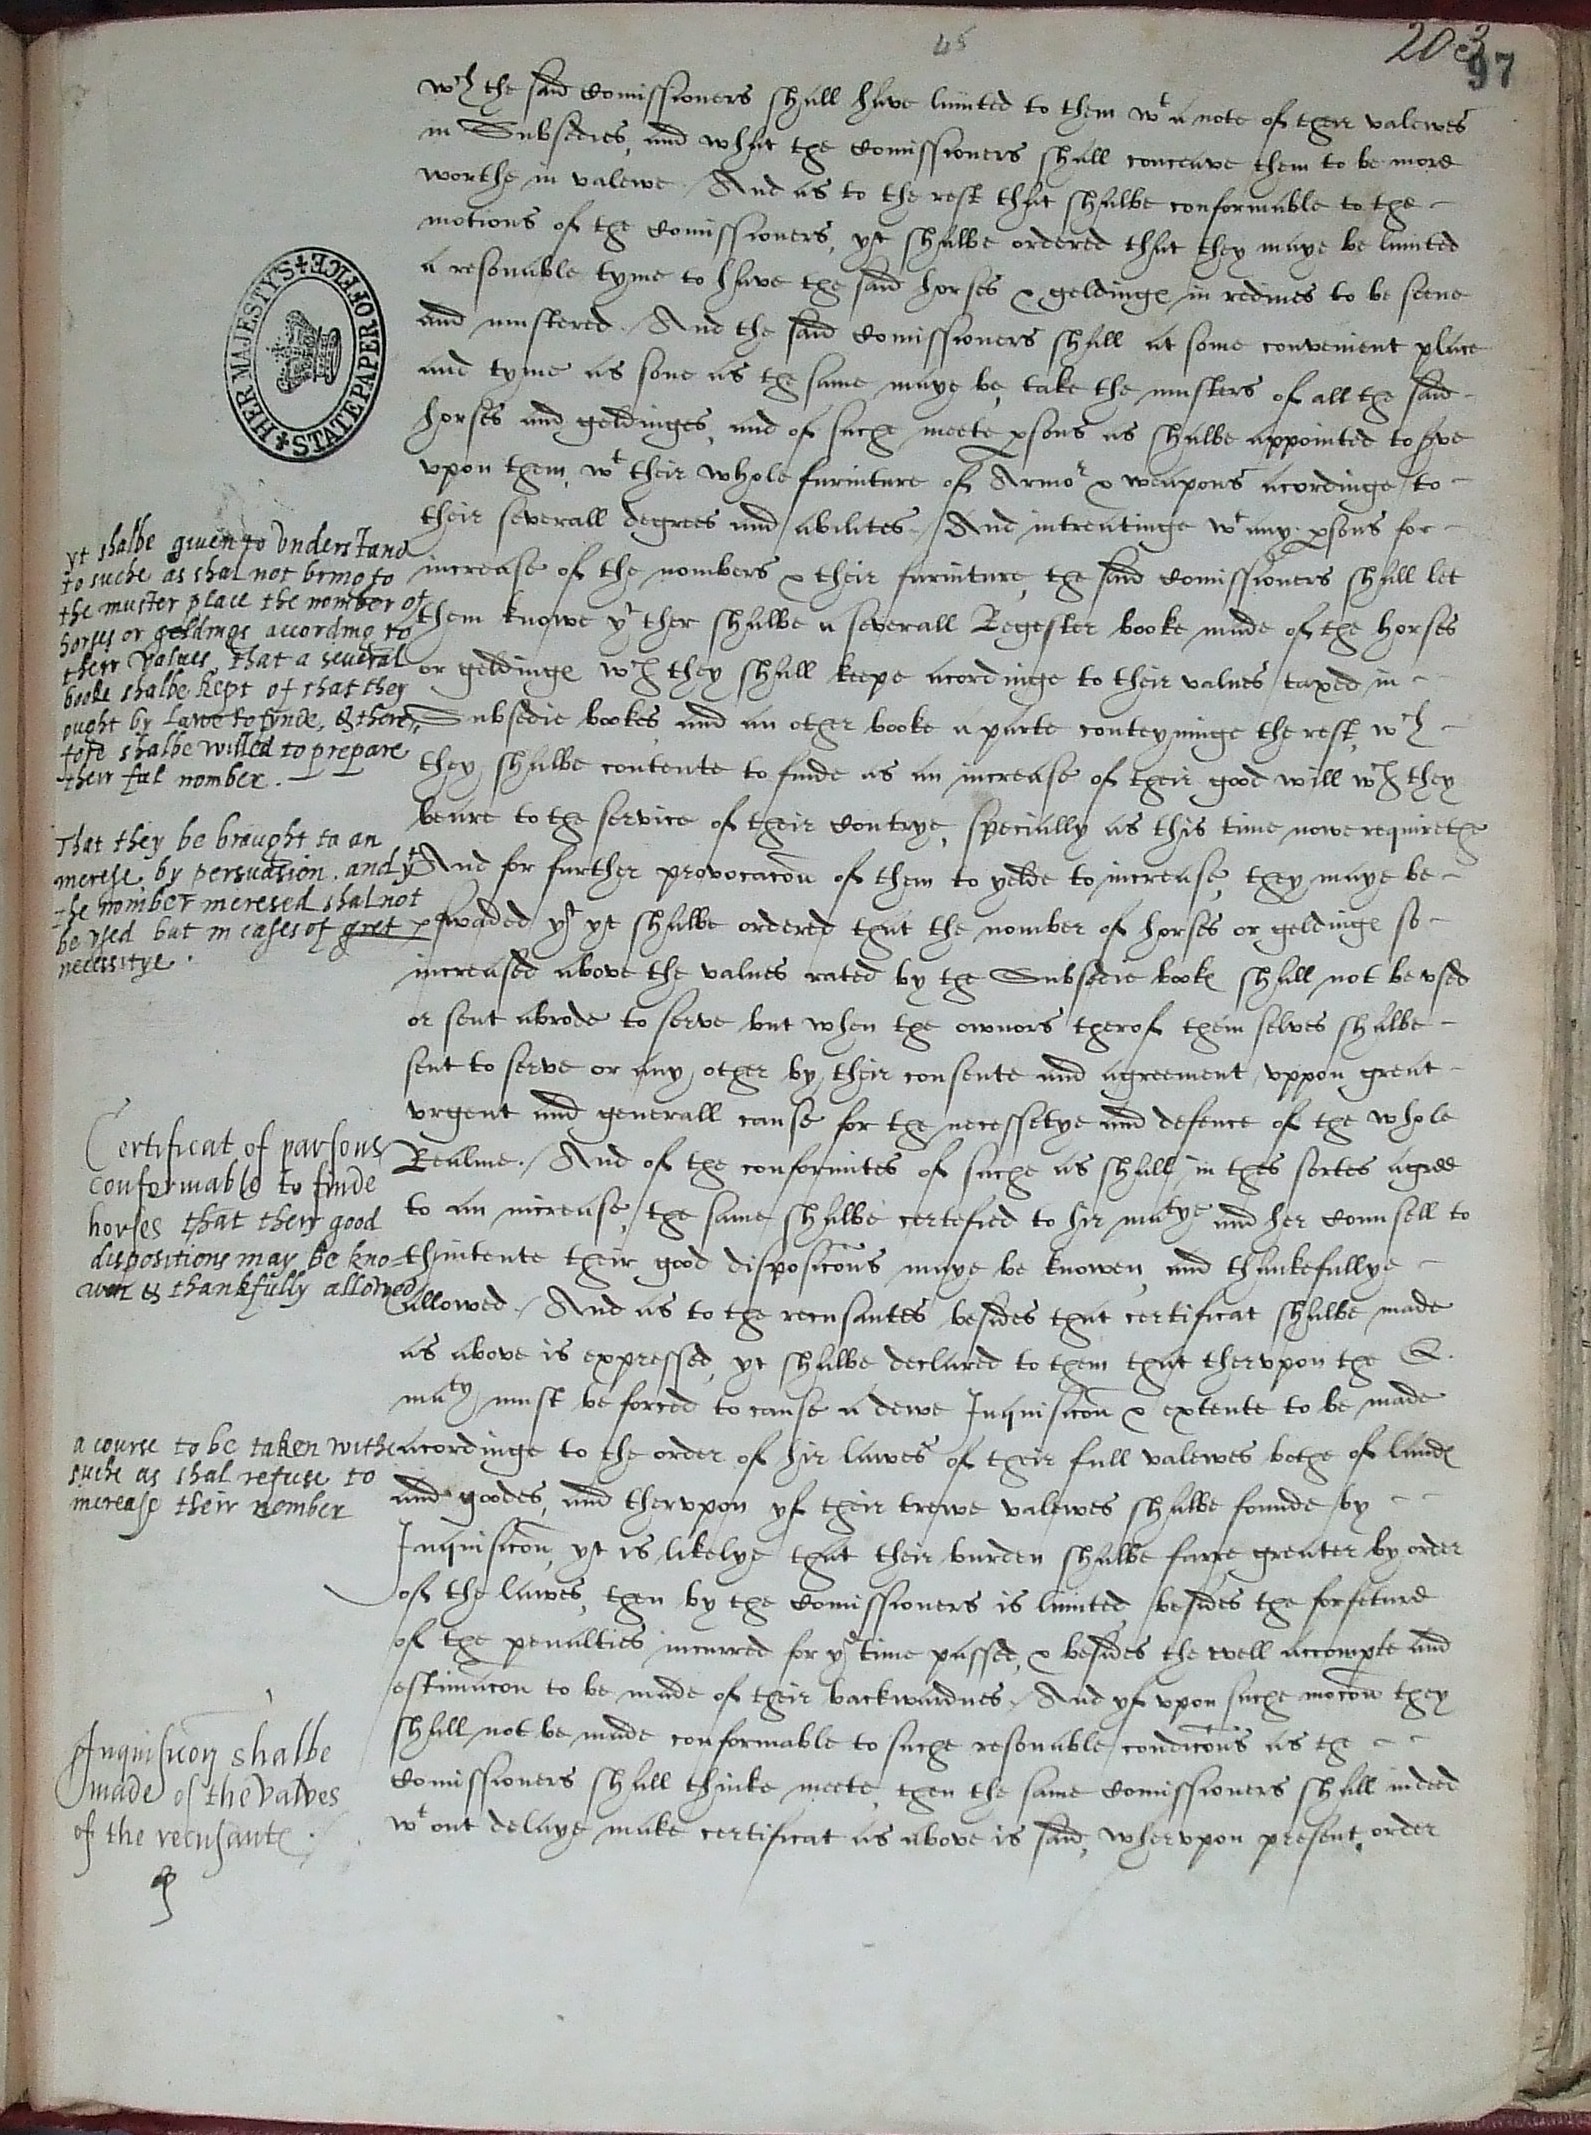 45
203
97
wch the said Comissioners shall have limited to them wt a note of their valewes
in Subsedies, and what the Comissioners shall conceave them to be more
worthe in valewe. And as to the rest that shalbe conformable to the
motions of the Comissioners, yt shalbe ordered that they maye be limited
a resonable tyme to have the said horses & geldinges in redines to be seene
and mustered. And the said Comissioners shall at some convenient place
and tyme as sone as the same maye be, take the musters of all the said
horses and geldinges, and of suche meete psons as shalbe appointed to serve
vpon them, wt their whole furniture of Armor & weapons acordinge to
their severall degrees and abilites. And intreatinge wt any psons for
increase of the nombers & their furniture, the said Comissioners shall let
them knowe yt ther shalbe a severall Regester booke made of the horses
or geldinges wch they shall keepe acordinge to their values taxed in
Subsedie bookes, and an other booke a parte conteyninge the rest, wch
they shalbe contente to finde as an increase of their good will wch they
beare to the service of their Contrye, specially as this time nowe requirethe
And for further provocacon of them to yelde to increase, they maye be
pswaded yt yt shalbe ordered that the nomber of horses or geldinges so
increased above the values rated by the Subsedie bookes shall not be vsed
or sent abrode to serve but when the owners therof them selves shalbe
sent to serve or any other by their consente and agreement vppon great
vrgent and generall cause for the necessetye and defence of the whole
Realme. And of the conformites of suche as shall in thes sortes agree
to an increase, the same shalbe certefied to hir matye and her Counsell to
thintente their good disposicons maye be knowen, and thankefullye
allowed. And as to the recusantes besides that certificat shalbe made
as above is expressed, yt shalbe declared to them that thervpon the Q.
maty must be forced to cause a dewe Inquisicon & extente to be made
acordinge to the order of hir lawes of their full valewes bothe of landes
and goodes, and thervpon yf their trewe valewes shalbe founde by
Inquisicon, yt is likelye that their burden shalbe farre greater by order
of the lawes, then by the Comissioners is limited, besides the forfeture
of the penalties incurred for ye time passed, & besides the evell accompte and
estimacon to be made of their backwardnes. And yf vpon suche mocon they
shall not be made conformable to suche resonable condicons as the
Comissioners shall thinke meete, then the same Comissioners shall indeed
wt out delaye make certificat as above is said, whervpon present order
HER MAJESTY'S STATE PAPER OFFICE
yt shalbe given to vnderstand
to suche as shal not bring to
the muster place the nomber of
horses or geldings according to
their values, that a several
booke shalbe kept of that they
ought by Lawe to fynde, & there
fore shalbe willed to prepare
their ful nomber.
That they be brought to an
increse by persuasion. and yt
the nomber incresed shal not
be vsed but in cases of gret
necessitye.
Certificat of parsons
conformable to finde
horses that their good
dispositions may be kno=
wen & thankfully allowed
a course to be taken withe
suche as shal refuse to
increase their nomber
Inquisicon shalbe
made of the values
of the recusantes.